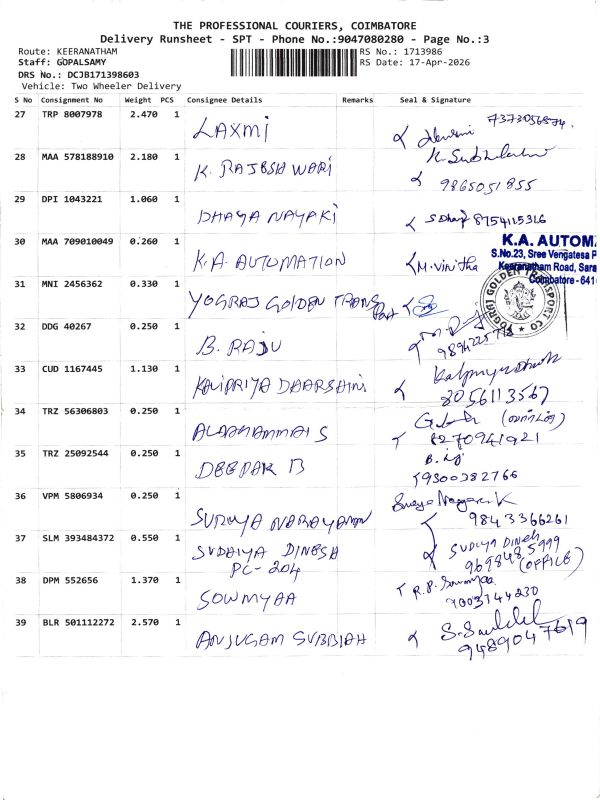 THE PROFESSIONAL COURIERS, COIMBATORE
Delivery Runsheet - SPT - Phone No.:9047080280 - Page No.:3
Route: KEERANATHAM
RS No.: 1713986
Staff: GOPALSAMY
RS Date: 17-Apr-2026
DRS No.: DCJB171398603
Vehicle: Two Wheeler Delivery
S No Consignment No Weight PCS Consignee Details Remarks Seal & Signature
27 TRP 8007978 2.470 1 LAXMI
28 MAA 578188910 2.180 1 K. RAJESHWARI
9865051855
29 DPI 1043221 1.060 1 DHAYANAYAKI
8754115316
30 MAA 709010049 0.260 1 K.A. AUTOMATION M.Vinitha
K.A. AUTOM
S.No.23, Sree Vengatesa P
Keeranatham Road, Sara
Coimbatore - 641
31 MNI 2456362 0.330 1 YOGRAJ GOLDEN TRANSPORT
YOGRAJ GOLDEN TRANSPORT CO
32 DDG 40267 0.250 1 B. RAJU
33 CUD 1167445 1.130 1 KALIPRIYA DHARSHINI
8056113567
34 TRZ 56306803 0.250 1
8270941921
35 TRZ 25092544 0.250 1 DEEPAK B
9300382766
36 VPM 5806934 0.250 1 SURIYA NARAYANAN
9843366261
37 SLM 393484372 0.550 1 SUDAIYA DINESH
PC-204
SUDIYA DINESH
9698485999
(OFFICE)
38 DPM 552656 1.370 1 SOWMYAA
9003144230
39 BLR 501112272 2.570 1 ANJUGAM SUBBIAH
9489047619